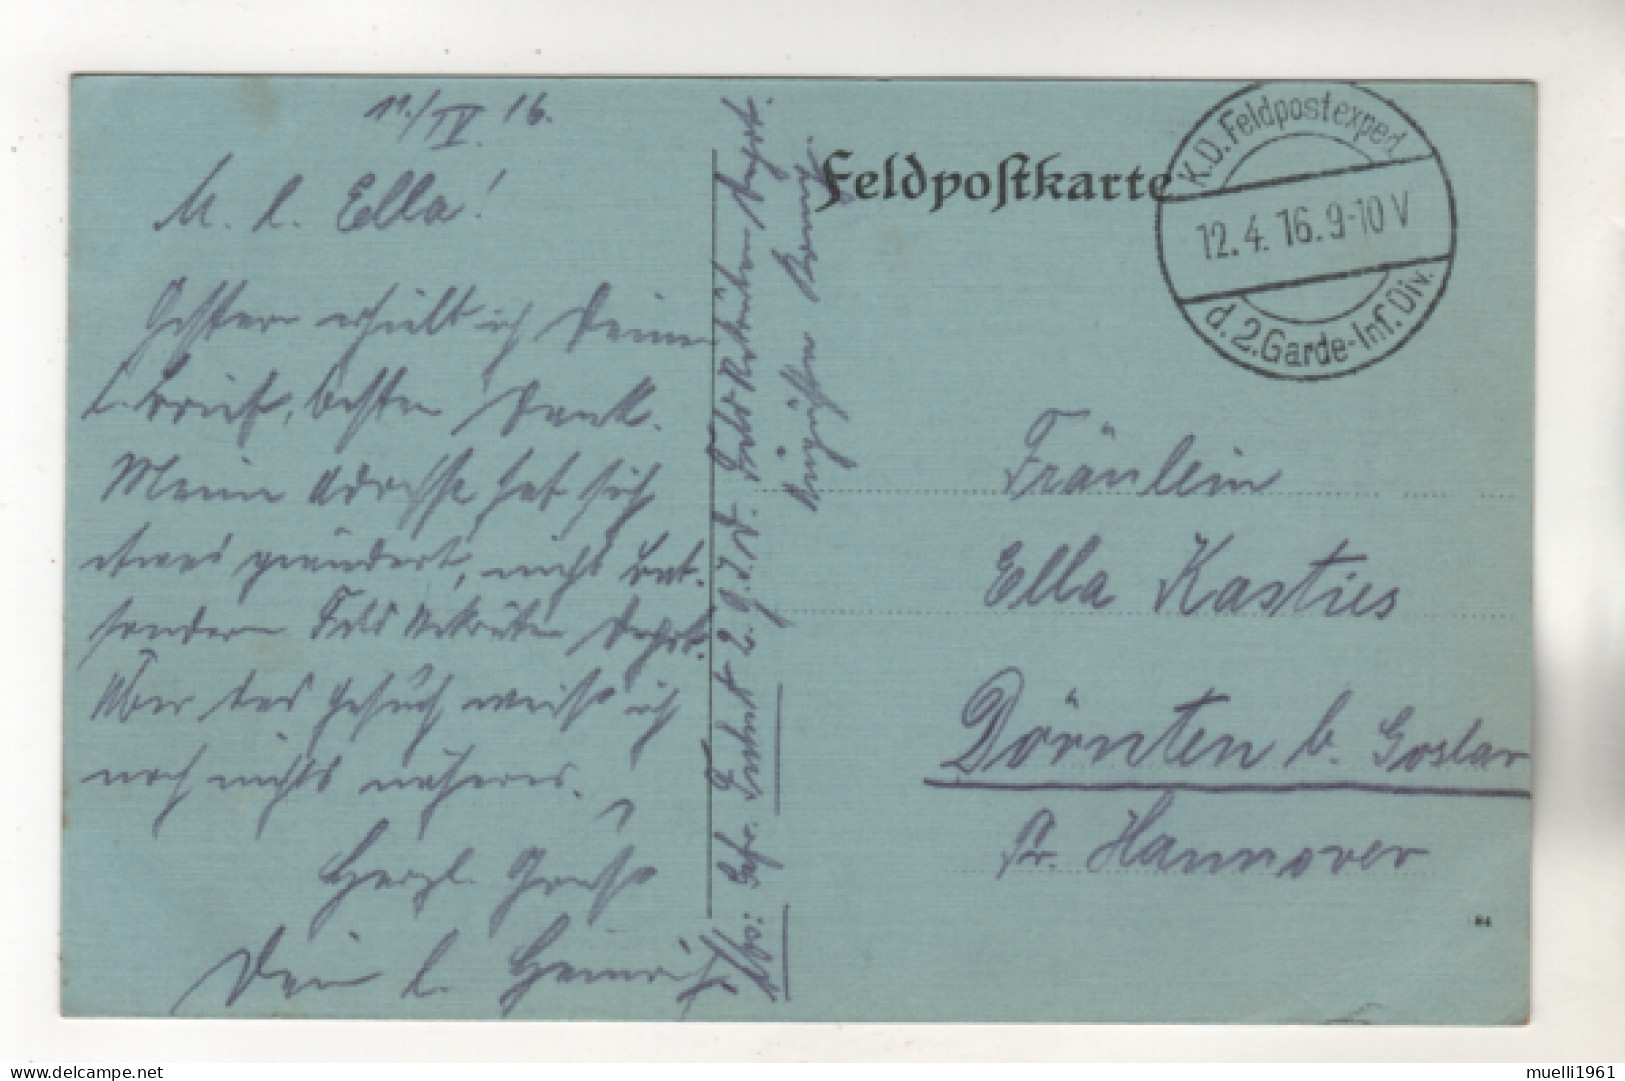 11./IV. 16.
M. l. Ella!
Gestern erhielt ich Deinen
l. Brief, besten Dank.
Meine Adresse hat sich
etwas geändert, nicht Bat.
sondern Feld Rekruten Depot.
Über das Gesuch weiß ich
noch nichts näheres.
Herzl. Grüße
Dein l. Heinrich
Abs: Gefr. 2. G. I. D. Feld Rekruten Depot.
Feldpostkarte
K.D. Feldpostexped.
12.4.16.9-10 V
d. 2. Garde-Inf. Div.
Fräulein
Ella Kasties
Dörnten b. Goslar
Pr. Hannover
delcampe.net
muelli1961